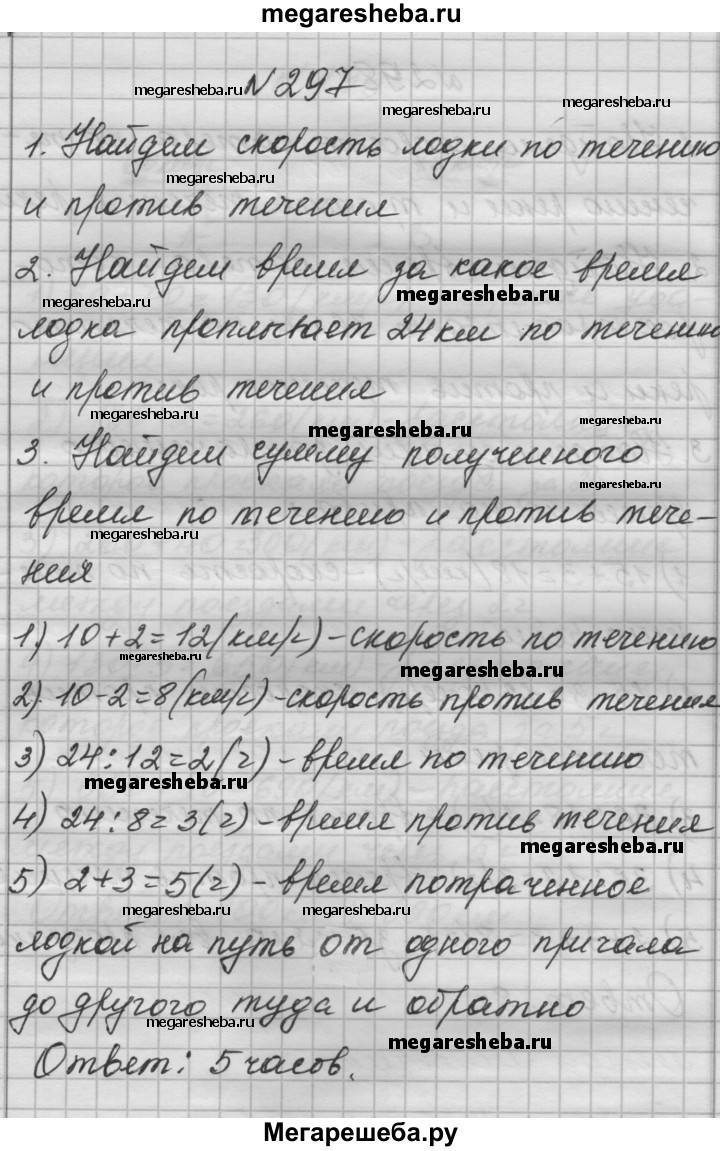 megaresheba.ru
megaresheba.ru №297 megaresheba.ru megaresheba.ru
1. Найдем скорость лодки по течению
megaresheba.ru
и против течения
2. Найдем время за какое время
megaresheba.ru megaresheba.ru
лодка проплывает 24 км по течению
и против течения
megaresheba.ru megaresheba.ru megaresheba.ru
3. Найдем сумму полученного
megaresheba.ru
время по течению и против тече-
megaresheba.ru
ния
1) 10+2=12(км/ч)-скорость по течению
megaresheba.ru megaresheba.ru
2) 10-2=8(км/ч)-скорость против течения
3) 24:12=2(ч)-время по течению
megaresheba.ru
4) 24:8=3(ч)-время против течения
megaresheba.ru
5) 2+3=5(ч)-время потраченное
megaresheba.ru megaresheba.ru
лодкой на путь от одного причала
до другого туда и обратно
megaresheba.ru megaresheba.ru
Ответ: 5 часов.
Мегарешеба.ру